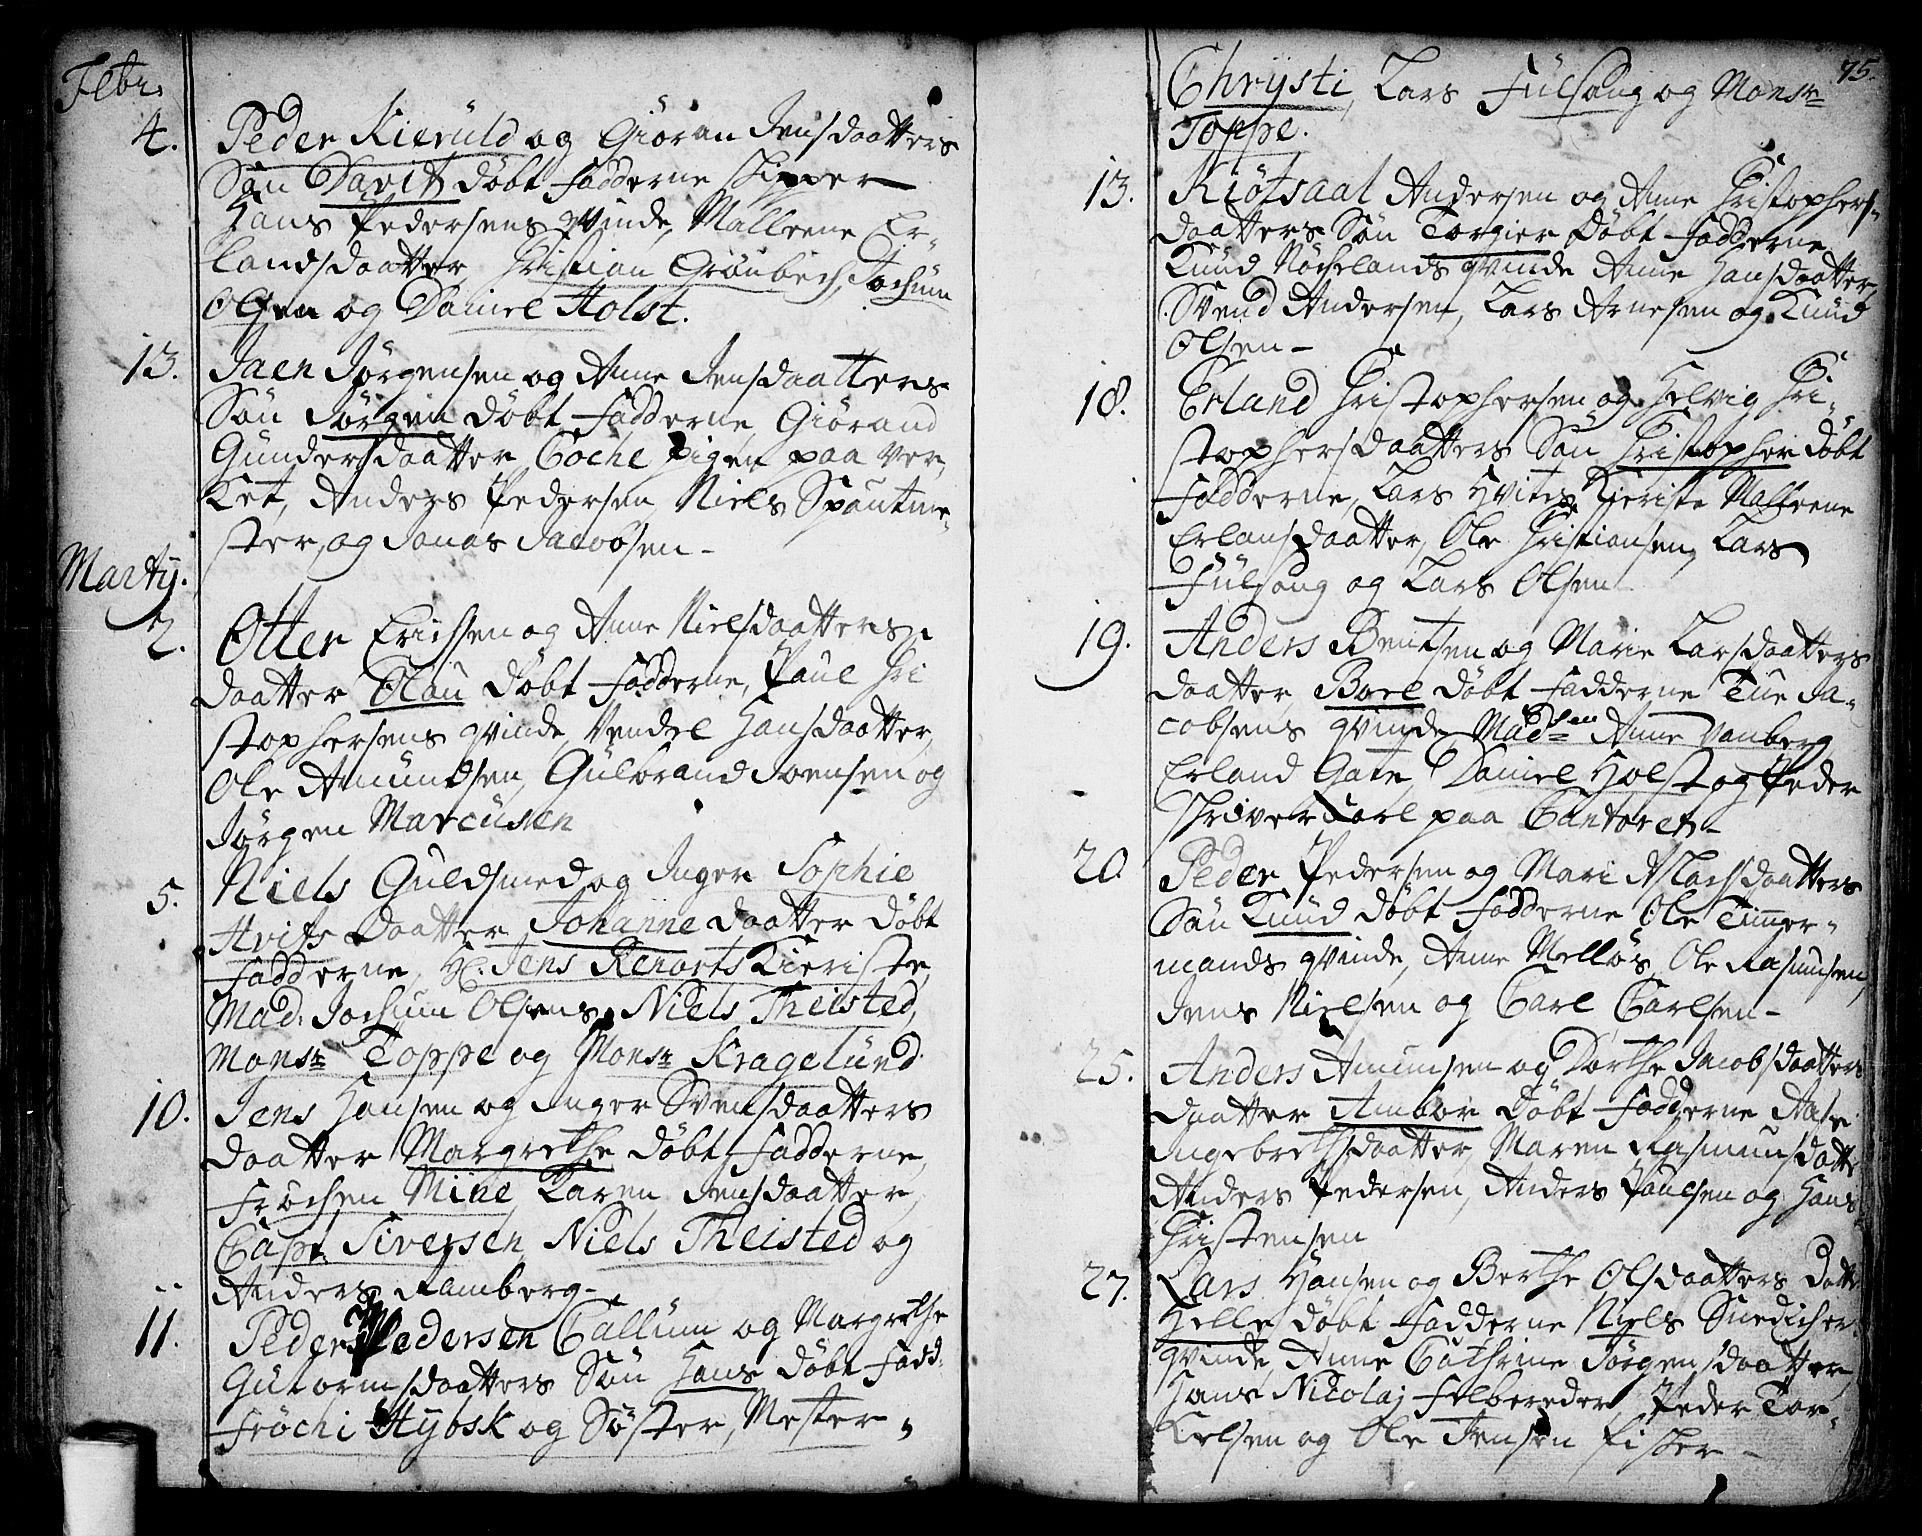 Febr:
4. Peder Kieruld og Giøran Jensdaatters
Søn Davit døbt Fadderne Skipper
Hans Pedersens qvinde, Malleene Er-
landsdaatter, Christian Grønbech, Jochum
Olsen og Daniel Holst.
13. Jaen Jørgensen og Anne Jensdaatters
Søn Jørgen døbt Fadderne Giørand
Gundersdaatter Coche pigen paa Ver,
ket, Anders Pedersen Niels Spautme-
ster, og Jonas Jacobsen-
Martij.
2. Otter Erichsen og Anne Nielsdaatters
daatter Olau døbt Fadderne, Paul Chri
stophersens qvinde, Vendel Hansdaatter,
Ole Amundsen, Gulbrand Joensen og
Jørgen Marcusen
5. Niels Guldsmed og Inger Sophie
Hvits Daatter Johanne daatter døbt
Fadderne, H: Jens Renorts Kieriste,
Mad: Jochum Olsens, Niels Theisted,
Monsr Toppe og Monsr Kragelund
10. Jens Hansen og Inger Svensdaatters
daatter Margrethe døbt Fadderne,
Frøchen Mine Karen Jensdaatter,
Capt Siversen Niels Theisted og
Anders Ramberg-
11. Peder Pedersen Callum og Margrethe
Gutormsdaatters Søn Hans døbt Fadd:
Frøchi Hybsk og Søster, Mester
75.
Chrysti, Lars Fulsang og Monsr
Toppe.
13. Kiøtsaal Andersen og Anne Christophers-
daatters Søn Torgier døbt Fadderne
Knud Nöchlands qvinde Anne Hansdaatter,
Svend Andersen, Lars Arnesen og Knud
Olsen-
18. Erland Christophersen og Helvig Chri-
stophersdaatters Søn Christopher døbt
Fadderne, Lars Hvites Kieriste Malleene
Erlansdaatter, Ole Christiansen, Lars
Fulsang og Lars Olsen
19. Anders Bentsen og Marie Larsdaatters
daatter Borel døbt Fadderne Tue Ja-
cobsens qvinde Madsen Anne Vanberg
Erland Gate, Daniel Holst og Peder
schriver Karl paa Cantoret-
20. Peder Pedersen og Mari Alarsdaatters
Søn Knud døbt Fadderne Ole Timer-
mands qvinde, Anne Melløs, Ole Rasmusen,
Jens Nielsen og Carl Carlsen-
25. Anders Amunsen og Dorthe Jacobsdaatters
daatter Ambor Døbt Fadderne Aase
Ingebrethsdaatter, Maren Rasmunsdatte
Anders Pedersen, Anders Paulsen og Hans
Christensen
27. Lars Hansen og Berthe Olsdaatters Datte
Helle døbt Fadderne Niels Snedicher
qvinde, Anne Cathrine Jørgensdaatter,
Hans Nicolaj Felbereder Peder Tor-
Kelsen og Ole Jensen fisker -